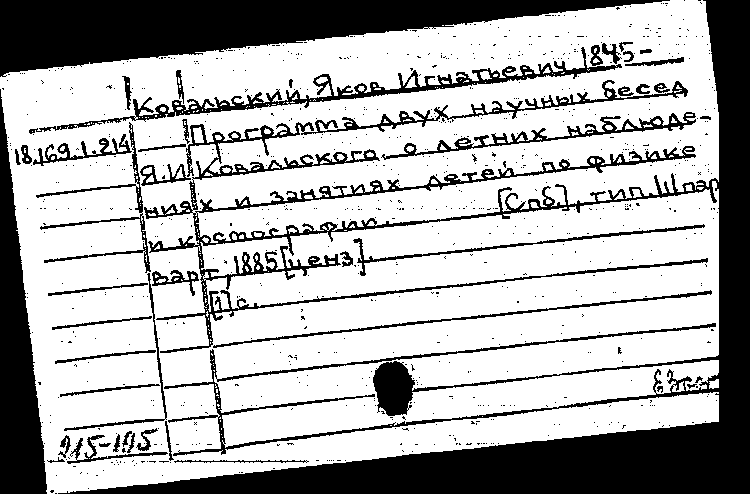 Ковальский, Яков Игнатьевич, 1845-
18.169.1.214
Программа двух научных бесед
Я.И. Ковальского о летних наблюде-
ниях и занятиях детей по физике
и космографии. [Спб.], тип. Шпар
варт, 1885 [ценз].
[1] с.
215-195